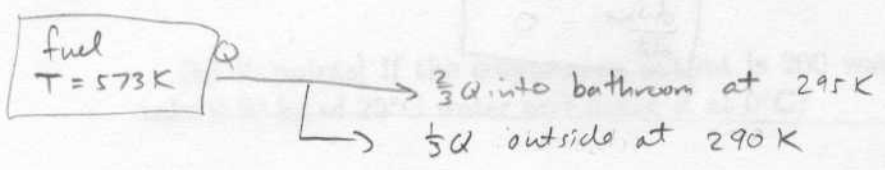 fuel
T = 573 K
Q
2/3 Q into bathroom at 295 K
1/3 Q outside at 290 K